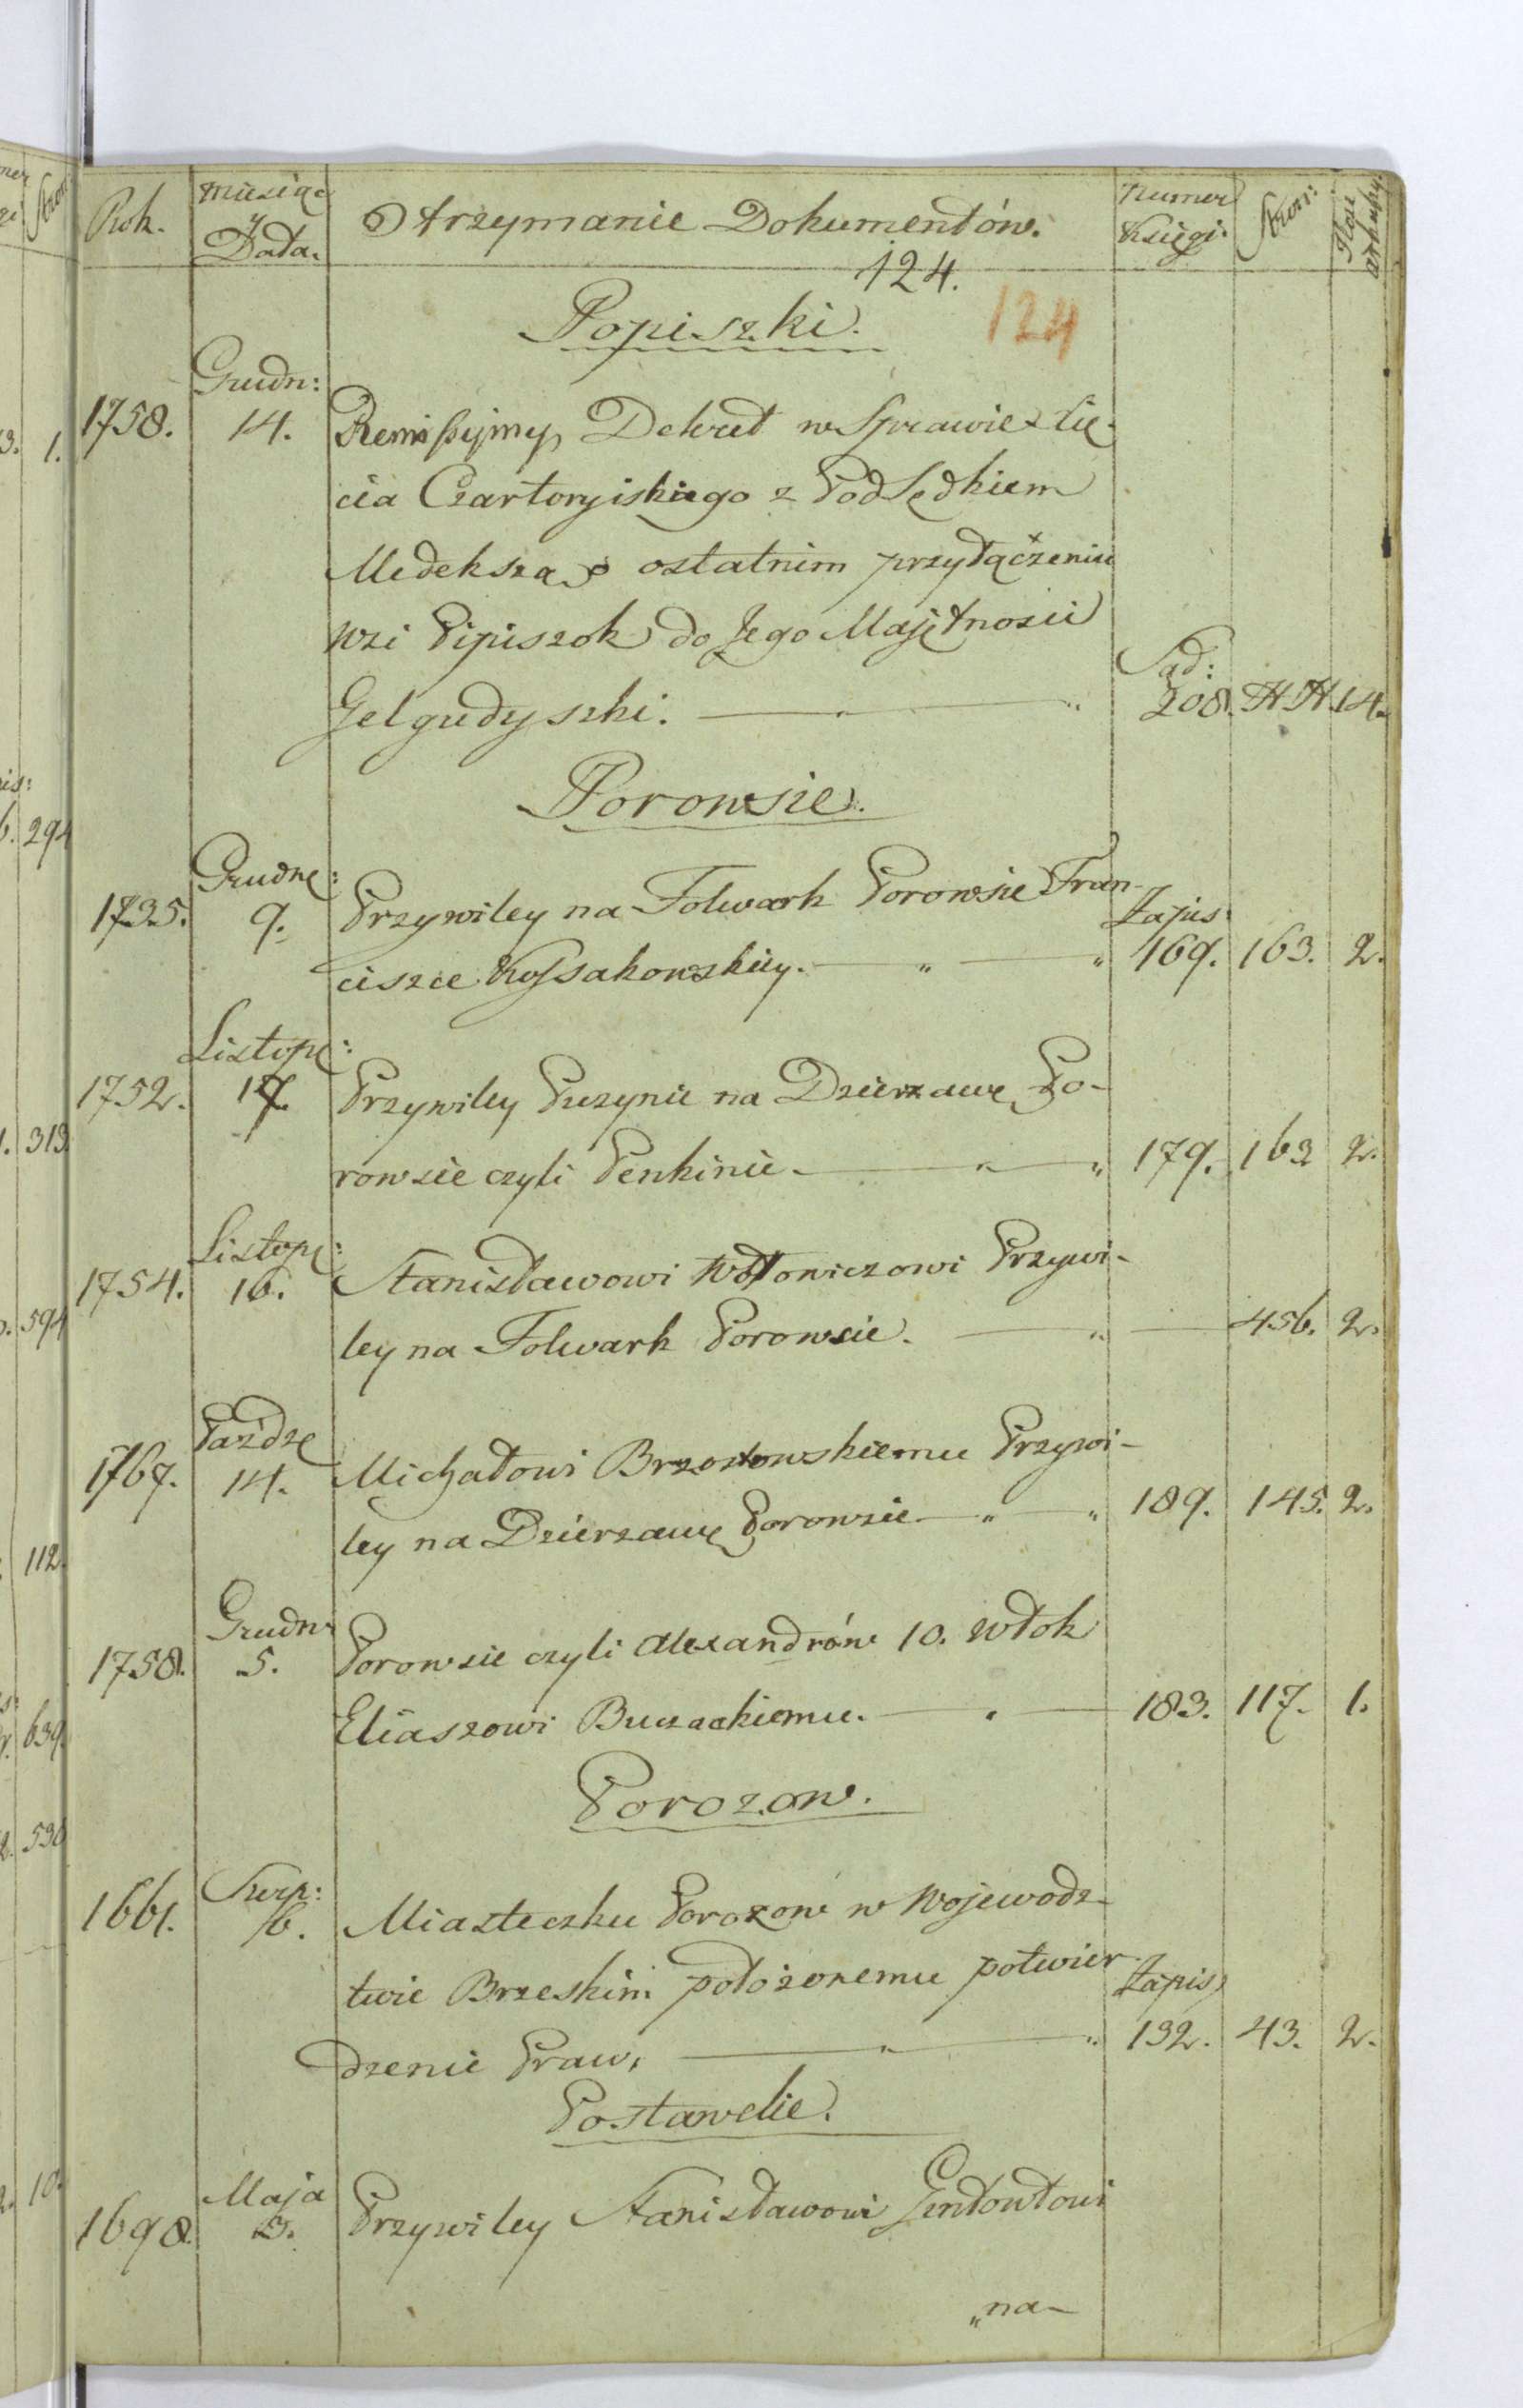 Rok.
Miesiąc
y
Data.
Otrzymanie Dokumentów.
Numer
Księgi.
Stron:
Ilość
arkuszy.
124.
124
Popiszki.
1758.
Grudn:
14.
Remissyjny Dekret w Sprawie Xię-
cia Czartoryiskiego z Podsędkiem
Medekszą o ostatnim przyłączeniu
Wsi Pipiszok do Jego Majętności
Gelgudyszki.
Sąd:
208. HH. 14.
Porowsie.
1735.
Grudn:
9.
Przywiley na Folwark Porowsie Fran-
ciszce Kossakowskiey.
Zapis:
169. 163. 2.
1752.
Listop:
17.
Przywiley Puzynie na Dzierzawę Po-
rowsie czyli Penkinie
179. 163 2.
1754.
Listop:
16.
Stanisławowi Wołłowiczowi Przywi-
ley na Folwark Porowsie.
456. 2.
1767.
Paźdz
14.
Michałowi Brzostowskiemu Przywi-
ley na Dzierzawę Porowsie
189. 145. 2.
1758.
Grudn
5.
Porowsie czyli Alexandrów 10. Włok
Eliaszowi Buczackiemu.
183. 117. 1.
Porozow.
1661.
Sierp:
16.
Miasteczku Porozow w Wojewodz-
twie Brzeskim położonemu potwier-
dzenie Praw,
Zapis
132. 43. 2.
Postawelie.
1698.
Maja
Przywiley Stanisławowi Gintowtowi
„na-
1.
294
313
594
112
639.
530
10.